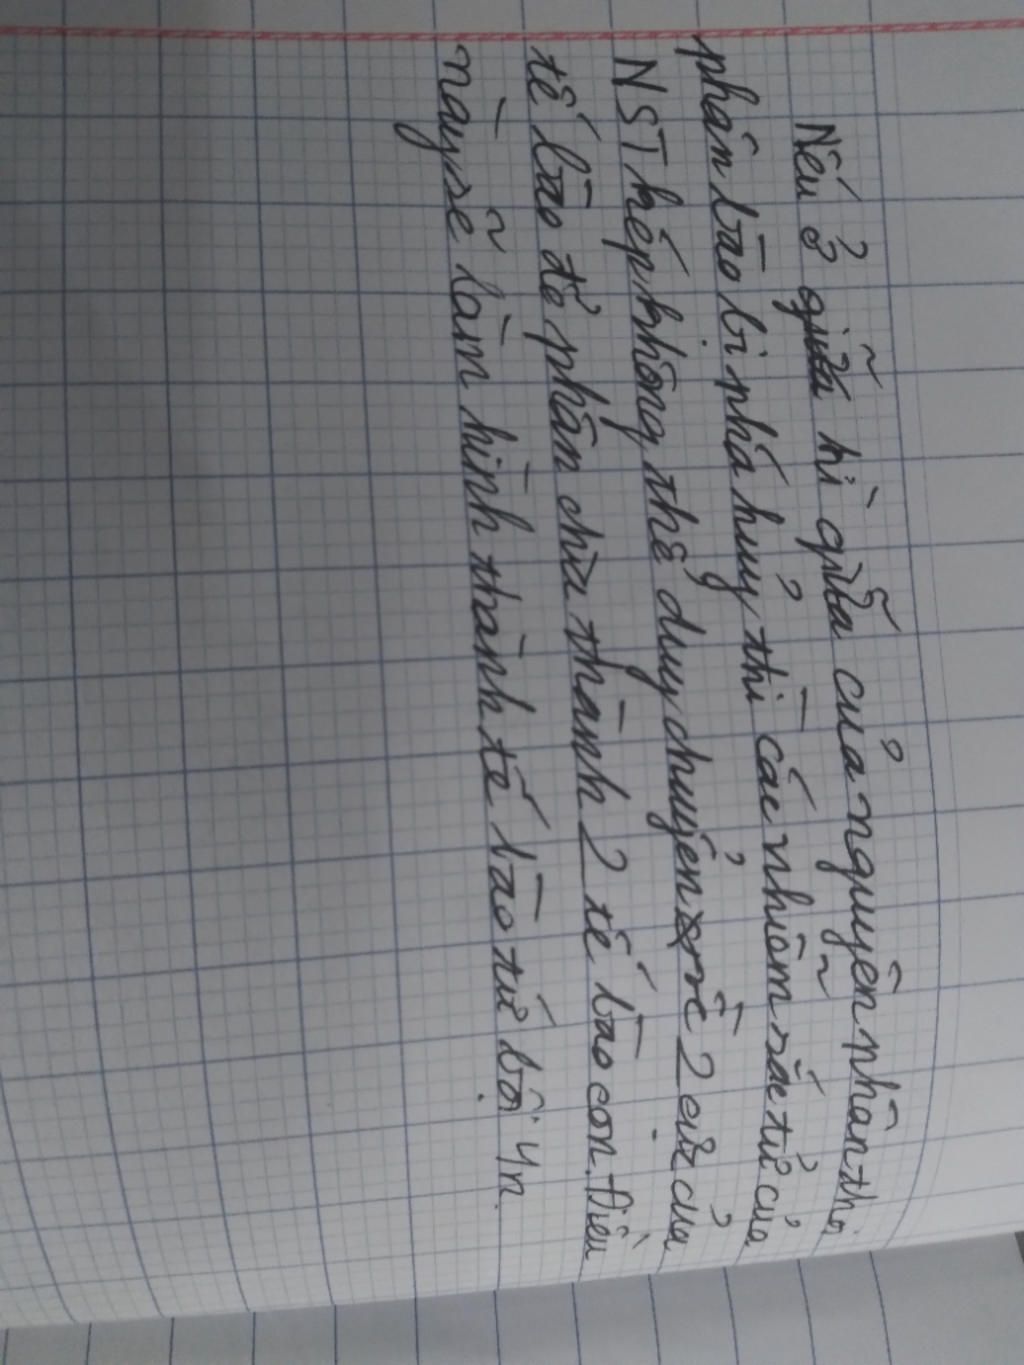 Nếu ở giữa kì giữa của nguyên phân thoi
phân bào bị phá huỷ thì các nhiễm sắc tử của
NST kép không thể duy chuyển về 2 cực của
tế bào để phân chia thành 2 tế bào con. Điều
này sẽ làm hình thành tế bào tứ bội 4n.